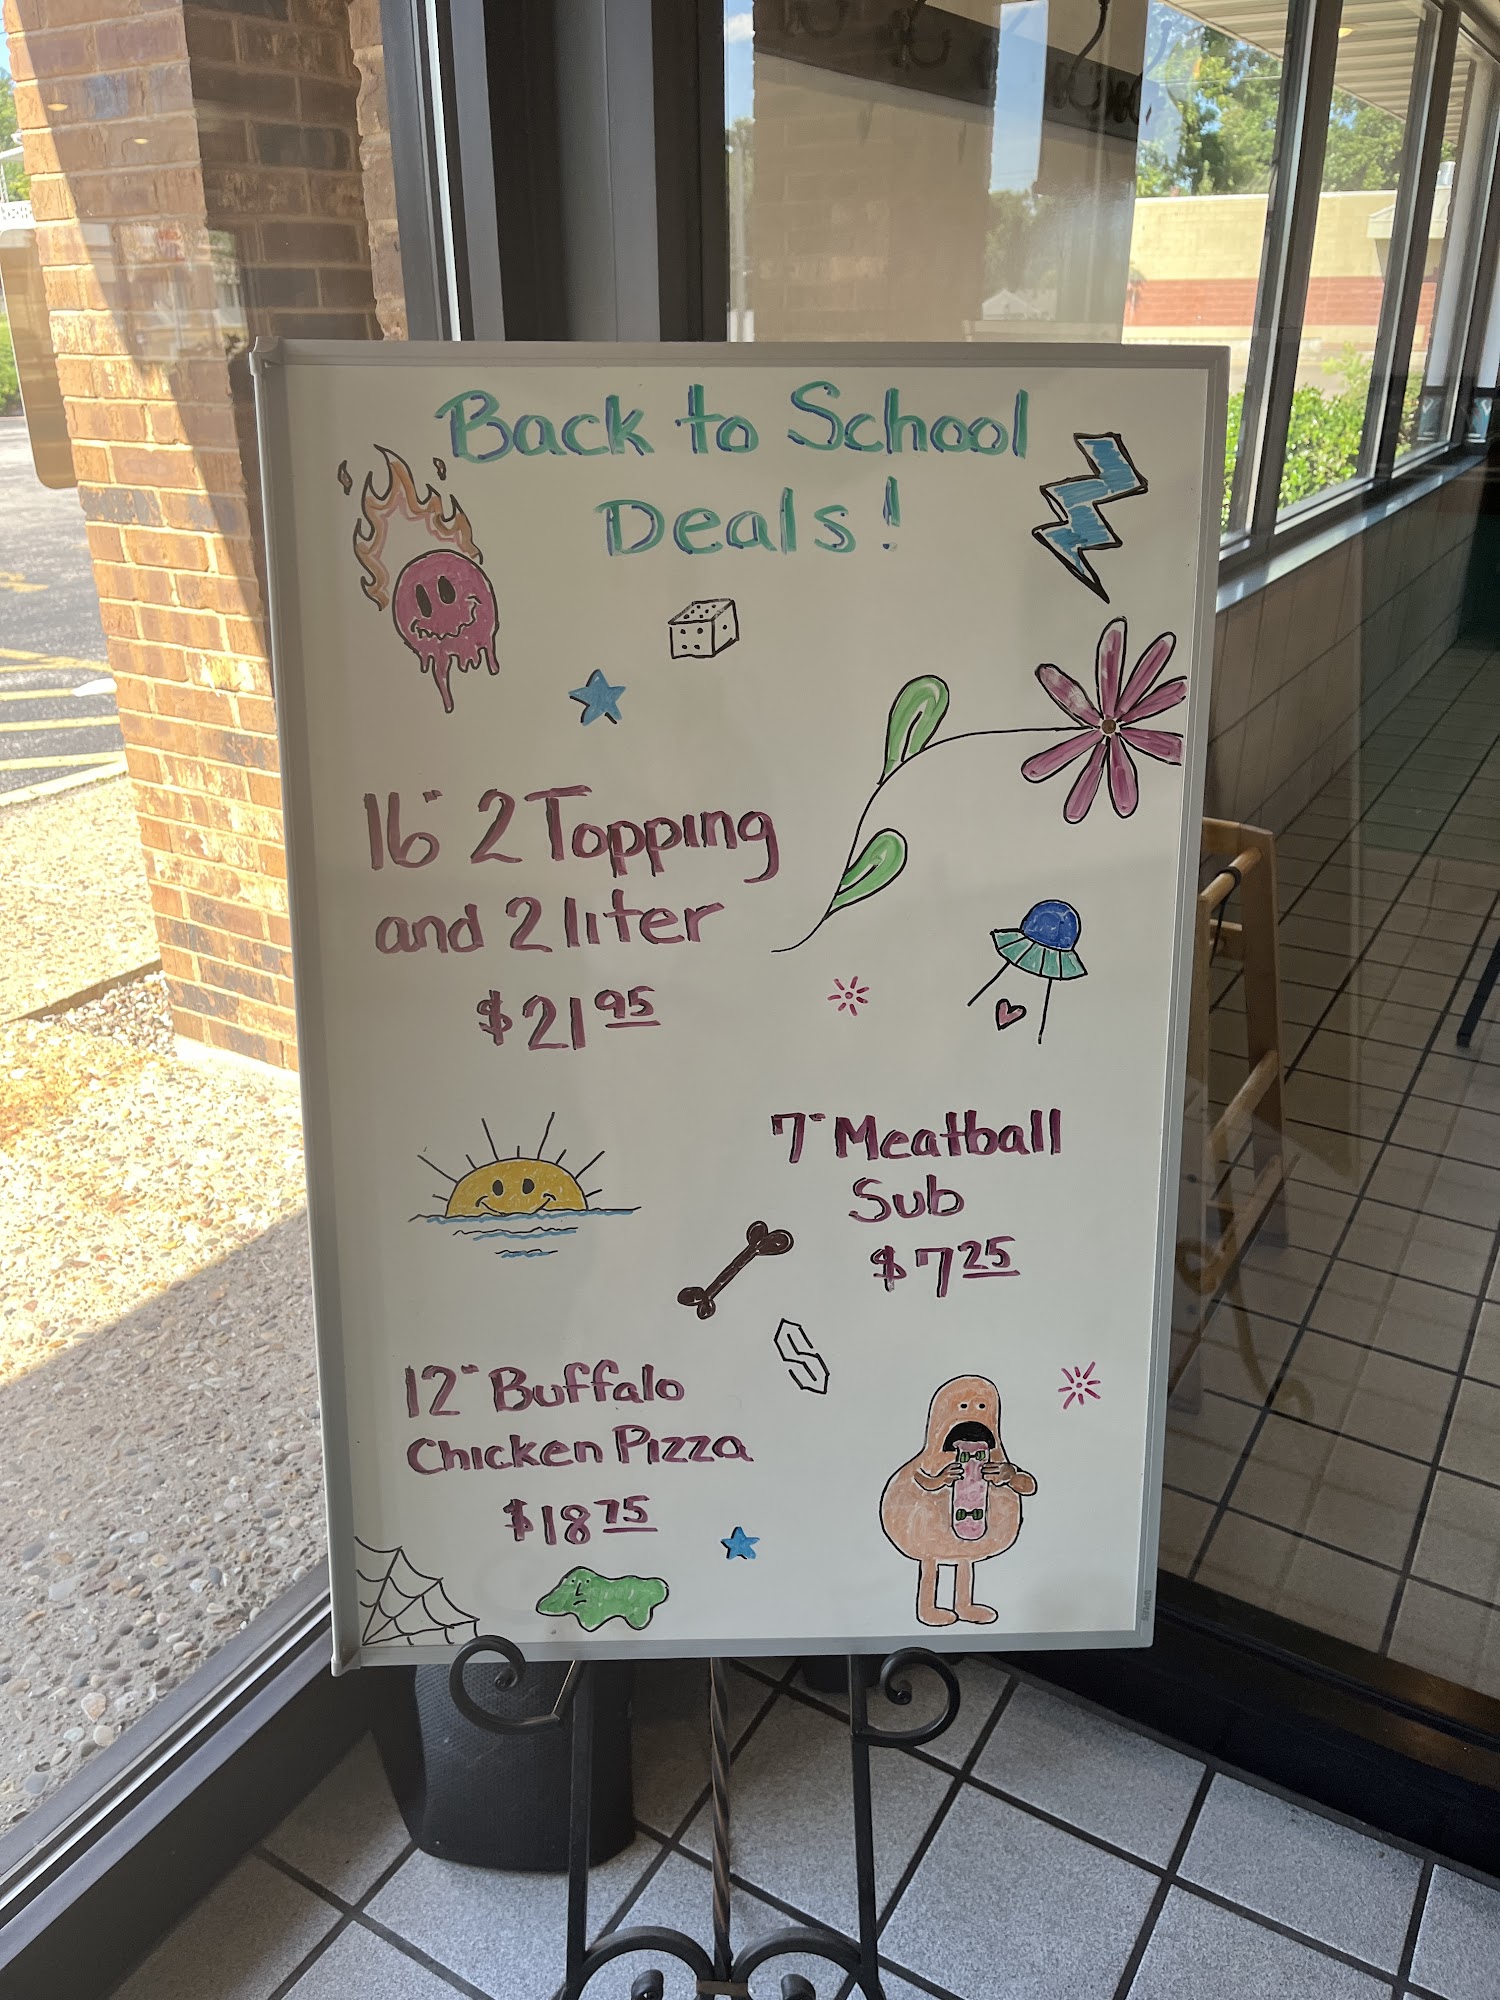 Back to School
Deals!
16" 2 Topping
and 2 liter
$21 95
7" Meatball
Sub
$7 25
12" Buffalo
Chicken Pizza
$18 75